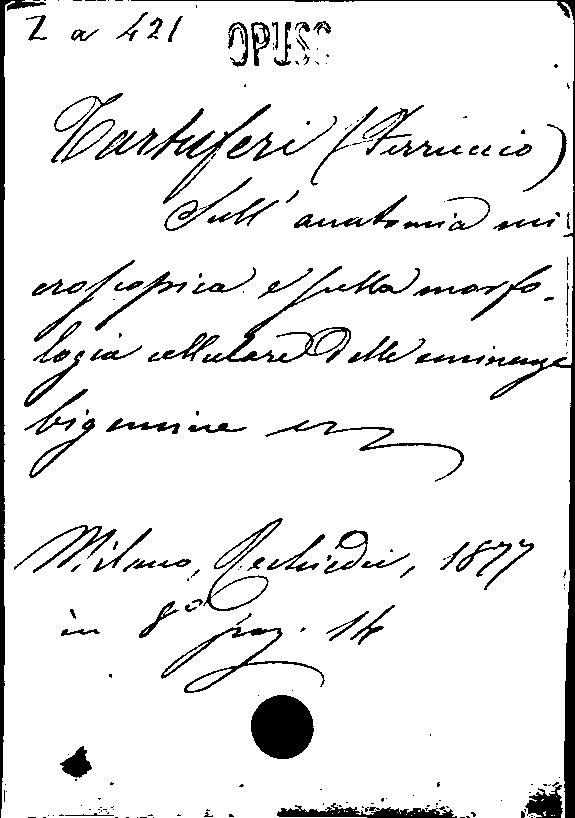 Z a 421 OPUSC
Tartuferi (Ferruccio)
Sull' anatomia mi-
croscopica e sulla morfo-
logia cellulare delle eminenze
bigemine ecc
Milano, Rechiedei, 1877
in 8° pag. 14